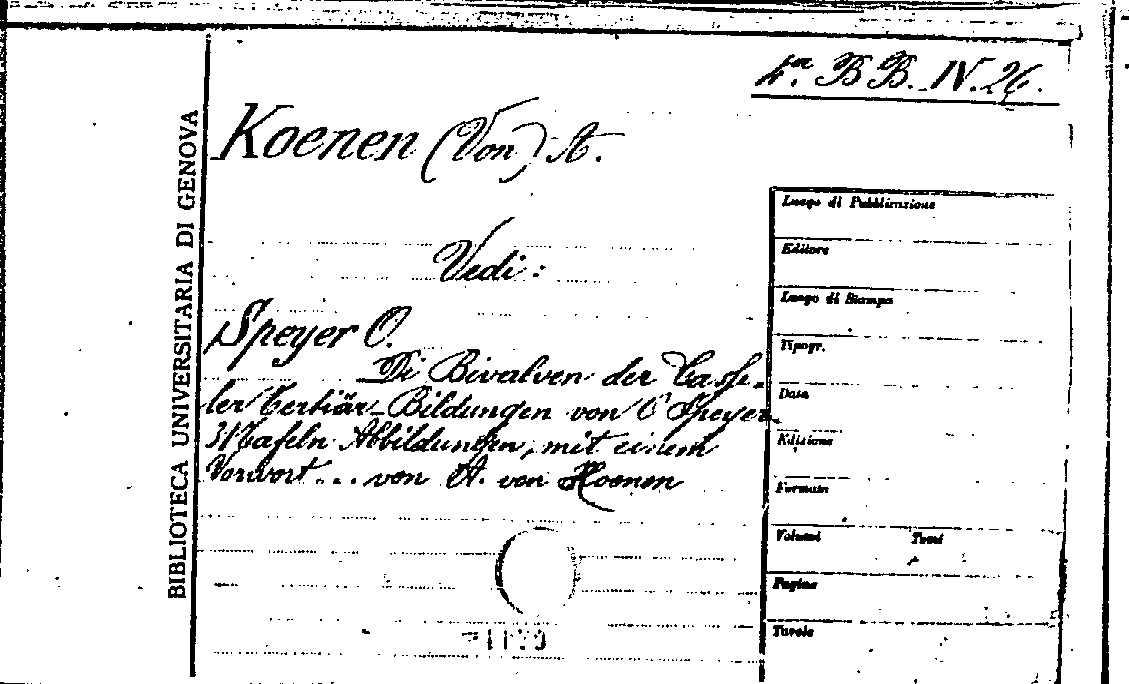 4.ᵃ BB. IV. 26.
Koenen (Von) A.
BIBLIOTECA UNIVERSITARIA DI GENOVA
Vedi:
Speyer O.
Di Bivalven der Casse-
ler Tertiär-Bildungen von O Speyer
31 Tafeln Abbildungen, mit einem
Vorwort... von A. von Koenen
Luogo di Pubblicazione
Editore
Luogo di Stampa
Tipogr.
Data
Edizione
Formato
Volumi Tomi
Pagine
Tavole